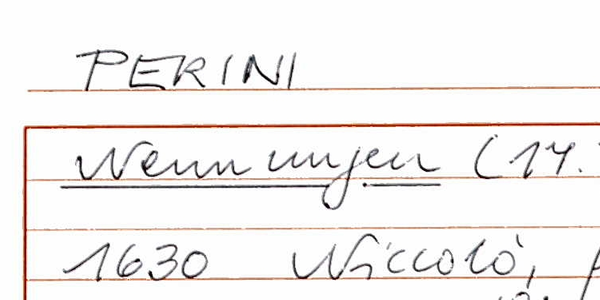 PERINI
Nennungen (14.
1630 Niccolò,